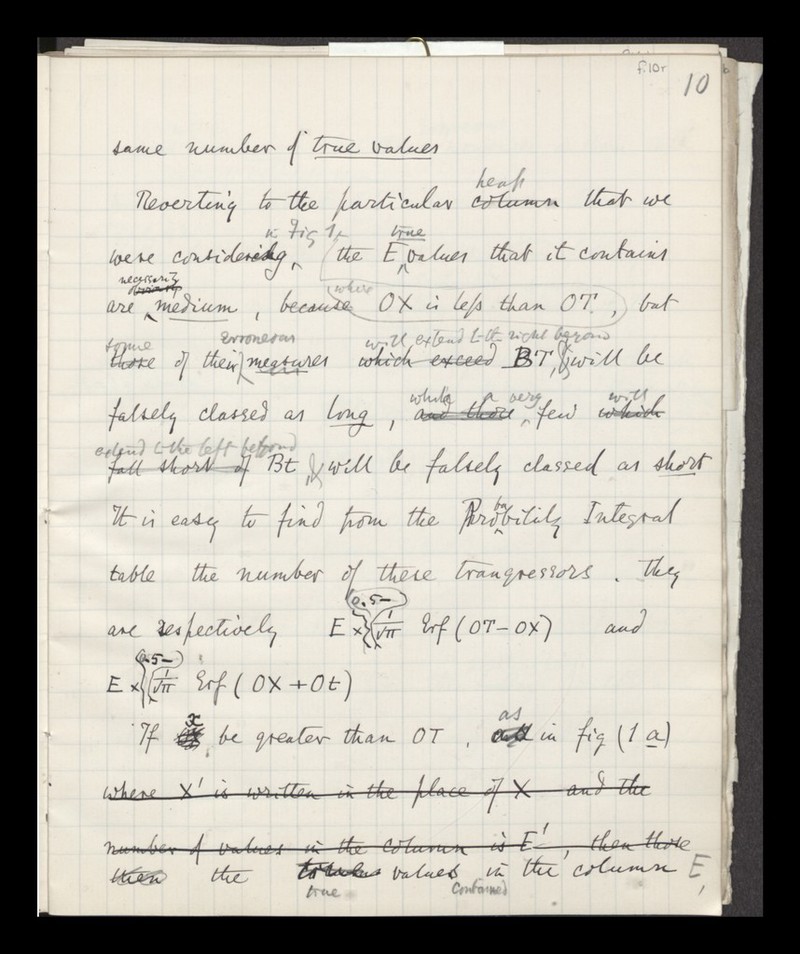 f.10r
10
same number of true values
heap
Reverting to the particular column that we
in Fig 1, true
were considering, the E values that it contains
necessarily where
are medium, because OX is less than OT, but
some erroneous will extend to the right beyond
those of their measures which exceed BT, will be
while a very will
falsely classed as long, and those, few which
extend to the left beyond
fall short of Bt, will be falsely classed as short
ba
It is easy to find from the Probility Integral
table the number of these trangressors. They
0.5-
are respectively E × { 1/√π Erf (OT-OX) and
0.5-
E × { 1/√π Erf (OX + Ot)
x as
If be greater than OT, in fig (1 a)
where X' is written in the place of X and the
number of values in the column is E', then those
then the values in the column E,
true contained